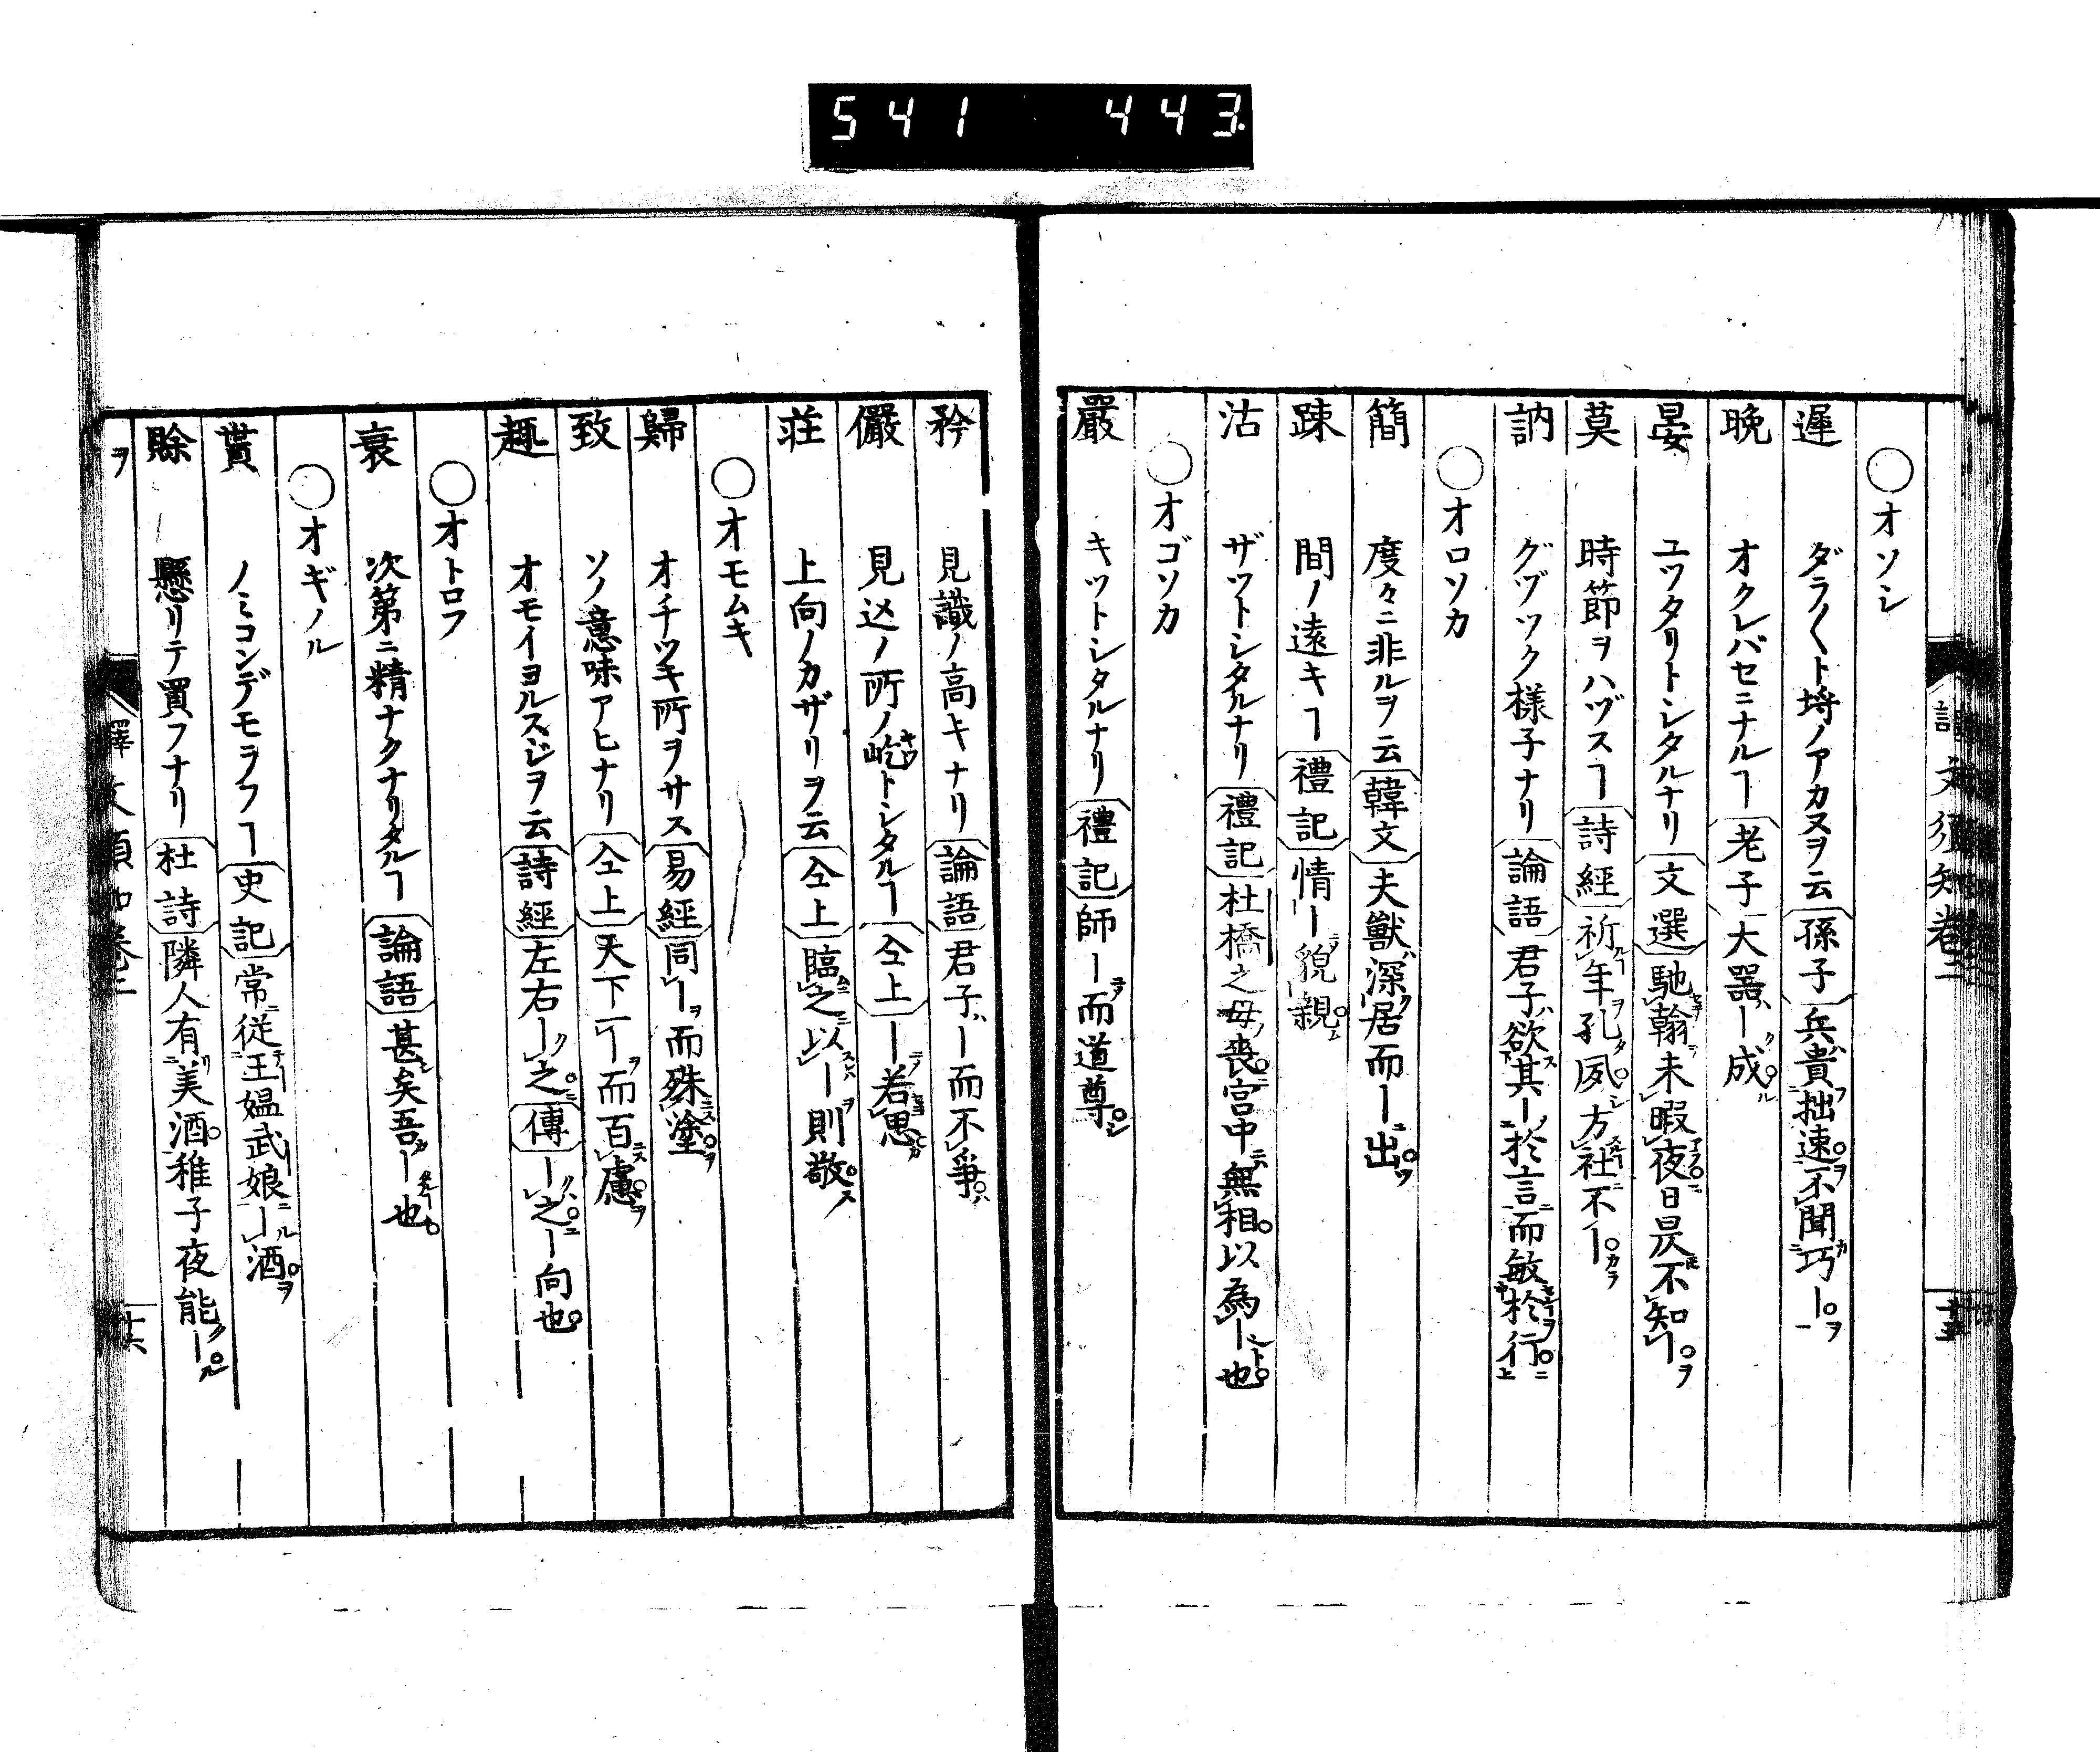 541 443
○オソシ
遲 ダラ〳〵ト埓ノアカヌヲ云 孫子 兵貴拙速不聞巧ー
晩 オクレバセニナルヿ 老子 大器ー成
晏 ユツタリトシタルナリ 文選 馳翰未暇夜日昃不知ー
莫 時節ヲハヅスヿ 詩經 祈年孔夙方社不ー
訥 グヅツク様子ナリ 論語 君子欲其ー於言而敏於行
○オロソカ
簡 度々ニ非ルヲ云 韓文 夫獸深居而ー出
踈 間ノ遠キヿ 禮記 情ー貌親
沽 ザツトシタルナリ 禮記 杜橋之母喪宮中無相以為ー也
○オゴソカ
嚴 キツトシタルナリ 禮記 師ー而道尊
矜 見識ノ高キナリ 論語 君子ー而不爭
儼 見込ノ所ノ屹トシタルヿ 仝上 ー若思
莊 上向ノカザリヲ云 仝上 臨之以ー則敬
○オモムキ
歸 オチツキ所ヲサス 易經 同ー而殊塗
致 ソノ意味アヒナリ 仝上 天下一ー而百慮
趣 オモイヨルスジヲ云 詩經 左右ー之 傳 ー之ー向也
○オトロフ
衰 次第ニ精ナクナリタルヿ 論語 甚矣吾ー也
○オギノル
貰 ノミコンデモラフヿ 史記 常従王媼武娘ー酒
賒 懸リテ買フナリ 杜詩 隣人有美酒稚子夜能ー
ヲ 譯文須知卷二 十六